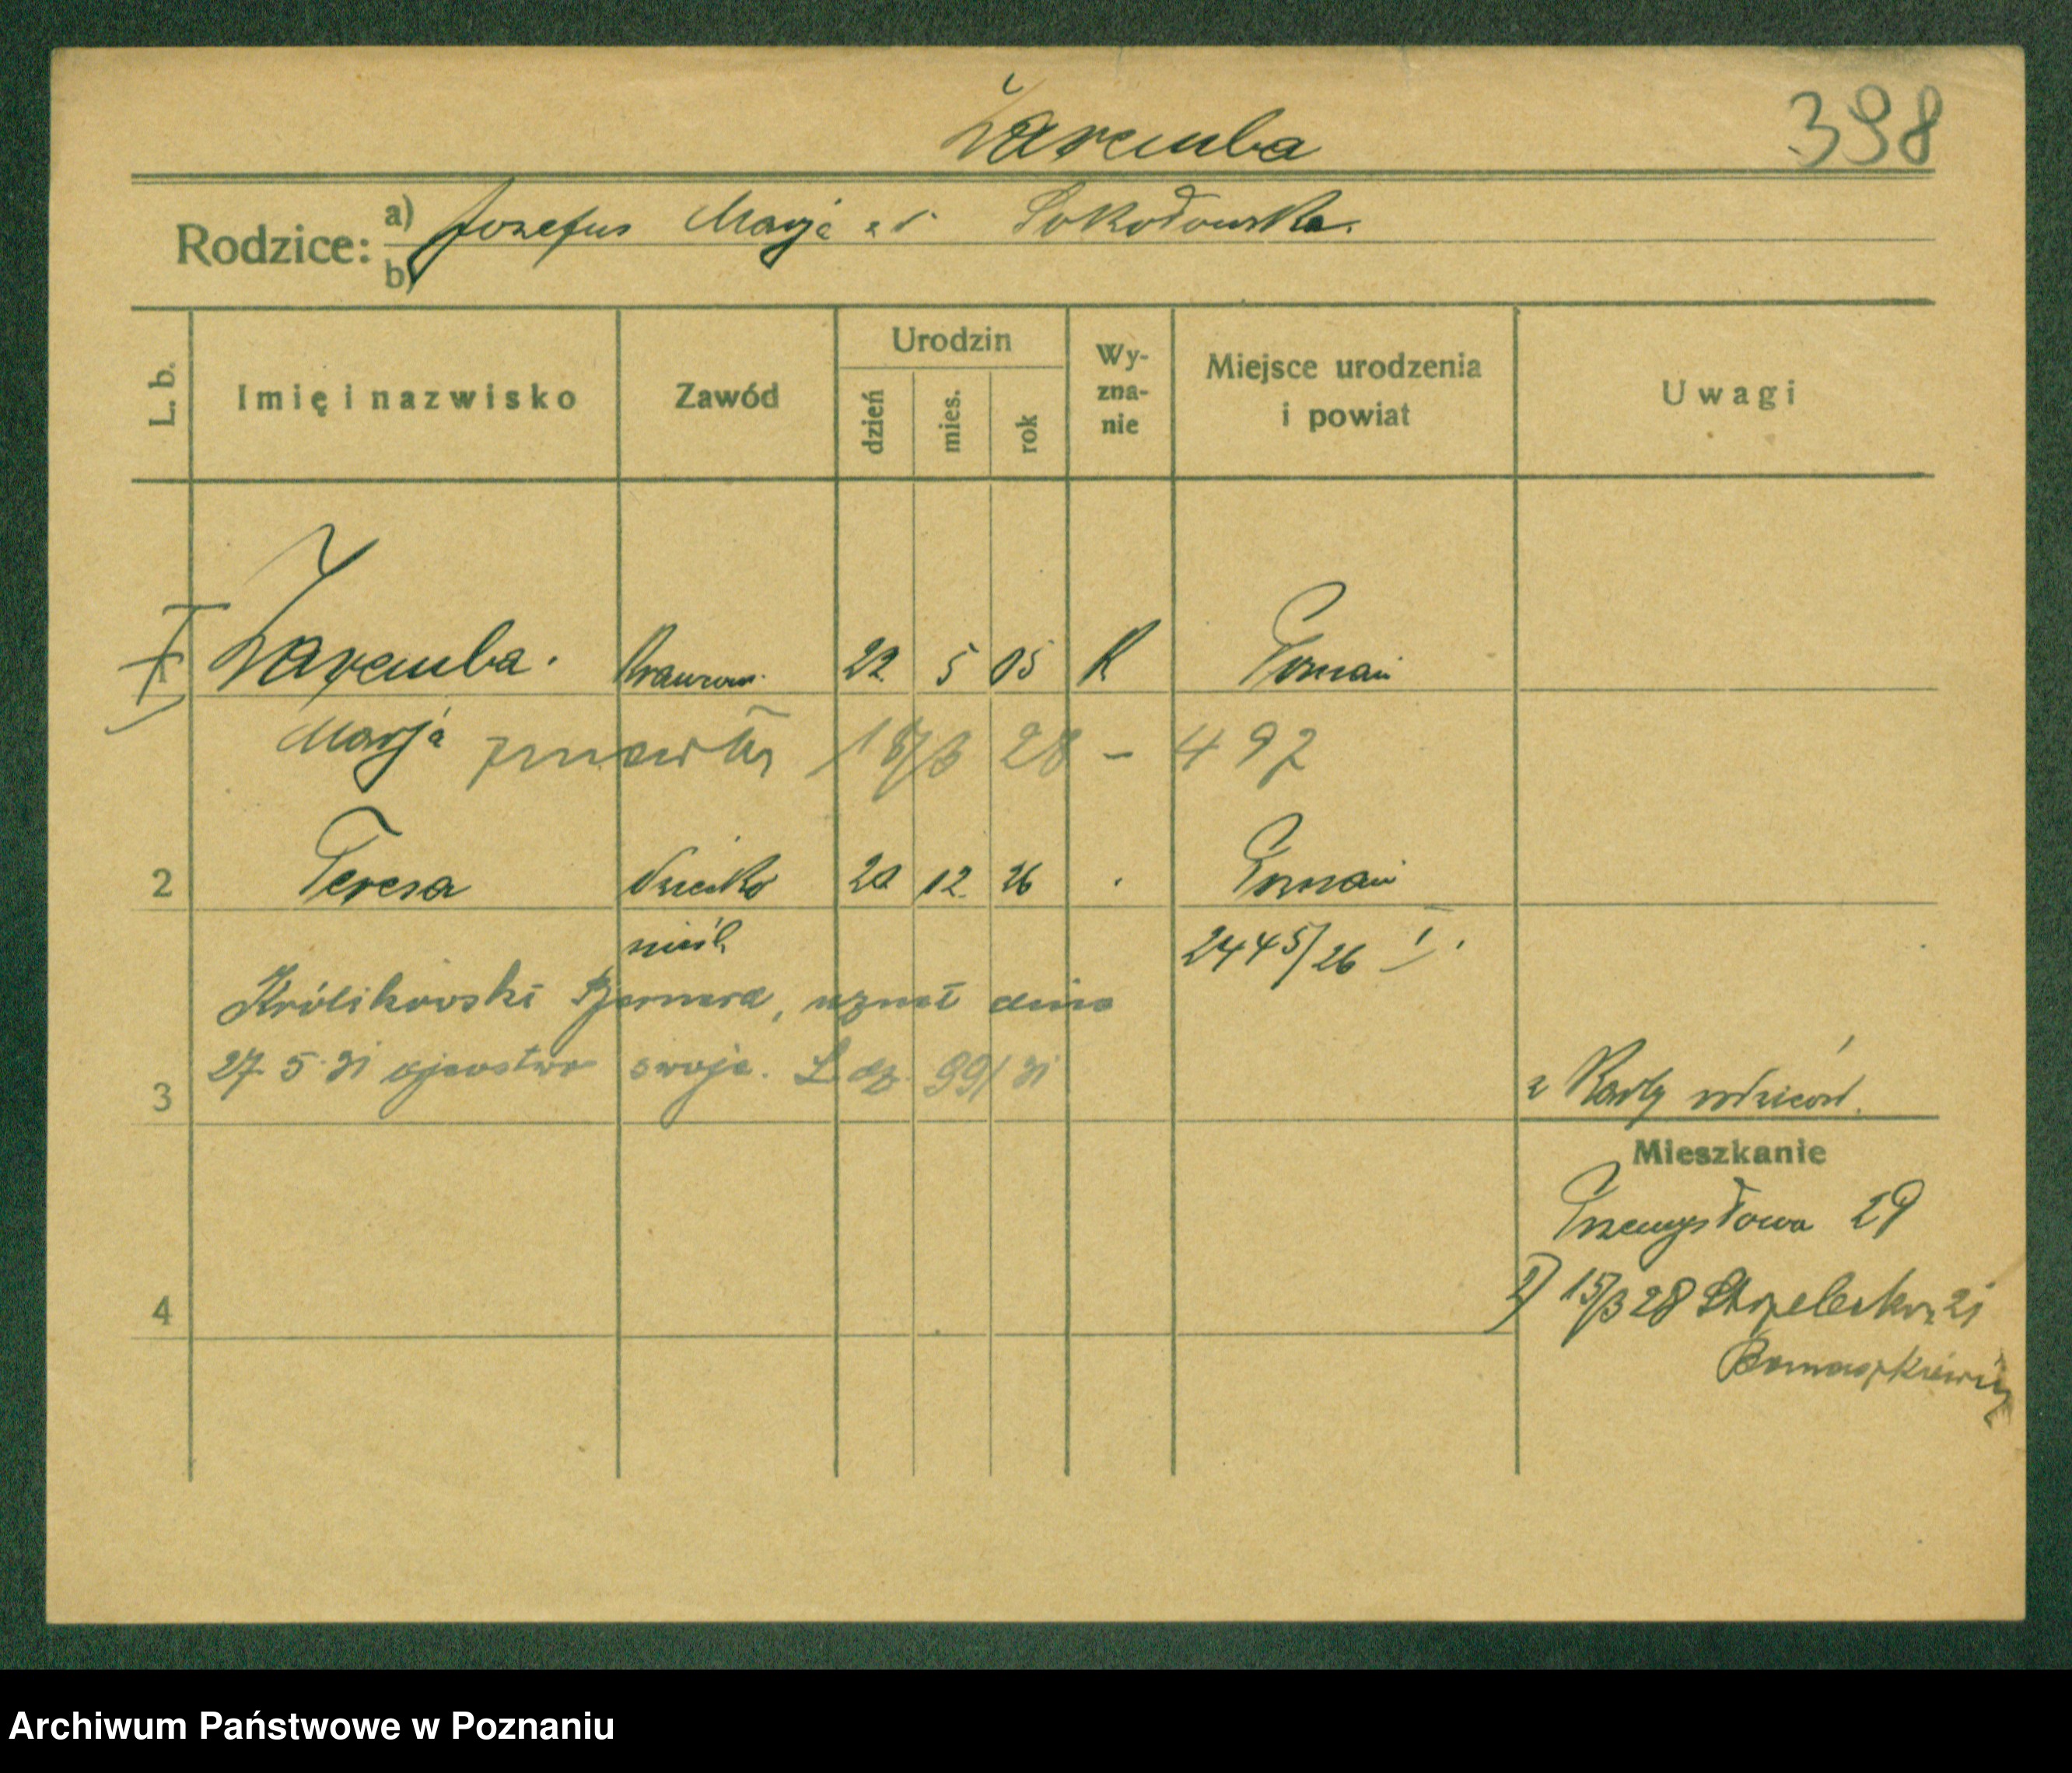 Zaremba 398
Rodzice: a) Jozefus Marja z d. Sokołowska.
b)
L. b. Imię i nazwisko Zawód Urodzin dzień mies. rok Wy-zna-nie Miejsce urodzenia i powiat Uwagi
Zaremba. Krawcowa 22 5 05 K Poznań
Marja zmarła 18/3 28 – 497
2 Teresa dziecko 20 12 26 Poznań
nieśl. 2445/26 I.
Królikowski Bernard, uznał dnia
27 5 31 ojcostwo swoje. L dz. 99/31
3 z Karty rodziców.
Mieszkanie
Przemysłowa 29
4 2) 15/3 28 Strzelecka 21
Archiwum Państwowe w Poznaniu